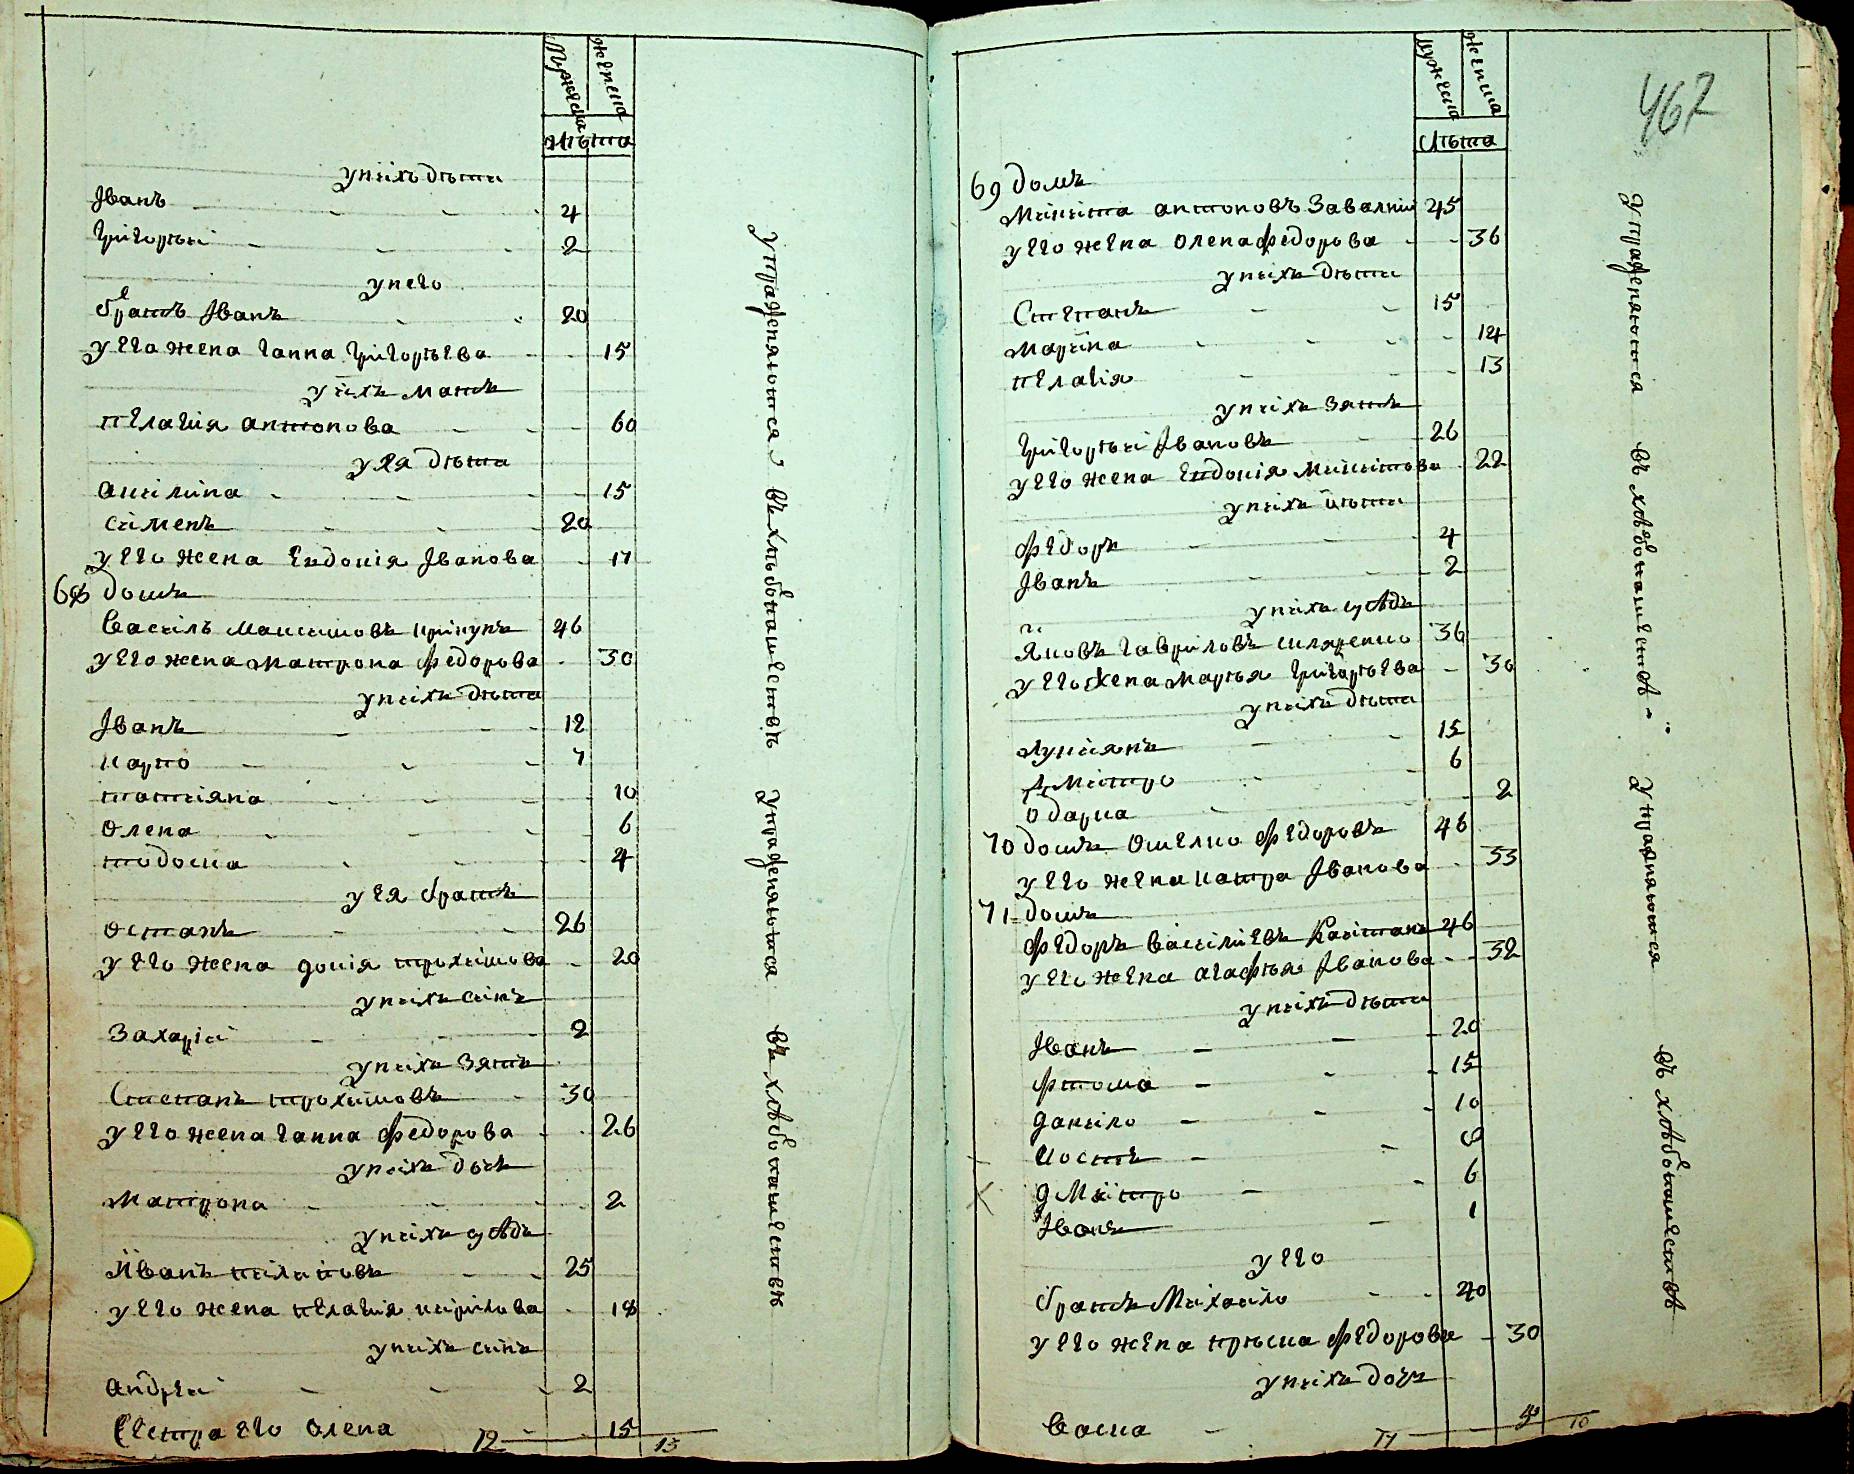 Мужеска
женска
лѣта
у нихъ дѣти
Іванъ 4
григорїй 2
у него
братъ Іванъ 20
у его жена ганна григорьева 15
у ихъ мать
пелагія антонова 60
у ея дѣти
акилина 15
сименъ 20
у его жена Евдокія Іванова 17
68 домъ
василь максимовъ прикупъ 46
у его жена матрона федорова 30
у нихъ дѣти
Іванъ 12
карпо 7
татіяна 10
олена 6
тодоска 4
у ея братъ
остапъ 26
у его жена докія трохимова 20
у нихъ синъ
захарій 2
у нихъ зять
Степанъ трохимовъ 30
у его жена ганна федорова 26
у нихъ дочъ
матрона 2
у нихъ сусѣдъ
Иванъ пилиповъ 25
у его жена пелагія кирилова 18
у нихъ синъ
андрей 2
сестра его олена 15
12 13
упражняются въ хлѣбопашествѣ
упражняются въ хлѣбопашествѣ
462
Мужеска
женска
лѣта
69 домъ
микита антоновъ завалній 45
у его жена олена федорова 36
у нихъ дѣти
Степанъ 15
марина 14
пелагія 13
у нихъ зять
григорій Івановъ 26
у его жена Евдокія микитова 22
у нихъ дѣти
федоръ 4
Іванъ 2
у нихъ сусѣдъ
яковъ гавриловъ шляренко 36
у его жена марья григорьева 30
у нихъ дѣти
лукіянъ 15
дмитро 6
одарка 2
70 домъ омелко федоровъ 46
у его жена катра Іванова 53
71 домъ
федоръ василіевъ капитанъ 46
у его жена агафья Іванова 32
у нихъ дѣти
Іванъ 20
фтома 15
данило 10
костъ 8
дмитро 6
Іванъ 1
у его
братъ михайло 40
у его жена приска федорова 30
у нихъ дочъ
васка
17 10
упражняются въ хлѣбопашествѣ
упражняются въ хлѣбопашествѣ